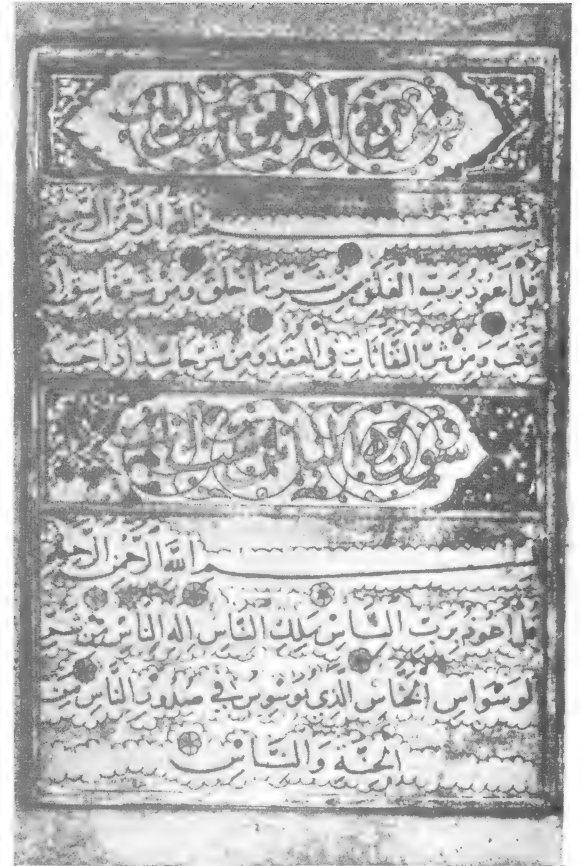 سورة الفلق خمس ايات
بسم الله الرحمن الرحيم
قل اعوذ برب الفلق من شر ما خلق ومن شر غاسق اذا
وقب ومن شر النفاثات في العقد ومن شر حاسد اذا حسد
سورة الناس ست ايات
بسم الله الرحمن الرحيم
قل اعوذ برب الناس ملك الناس اله الناس من شر
الوسواس الخناس الذي يوسوس في صدور الناس من
الجنة والناس